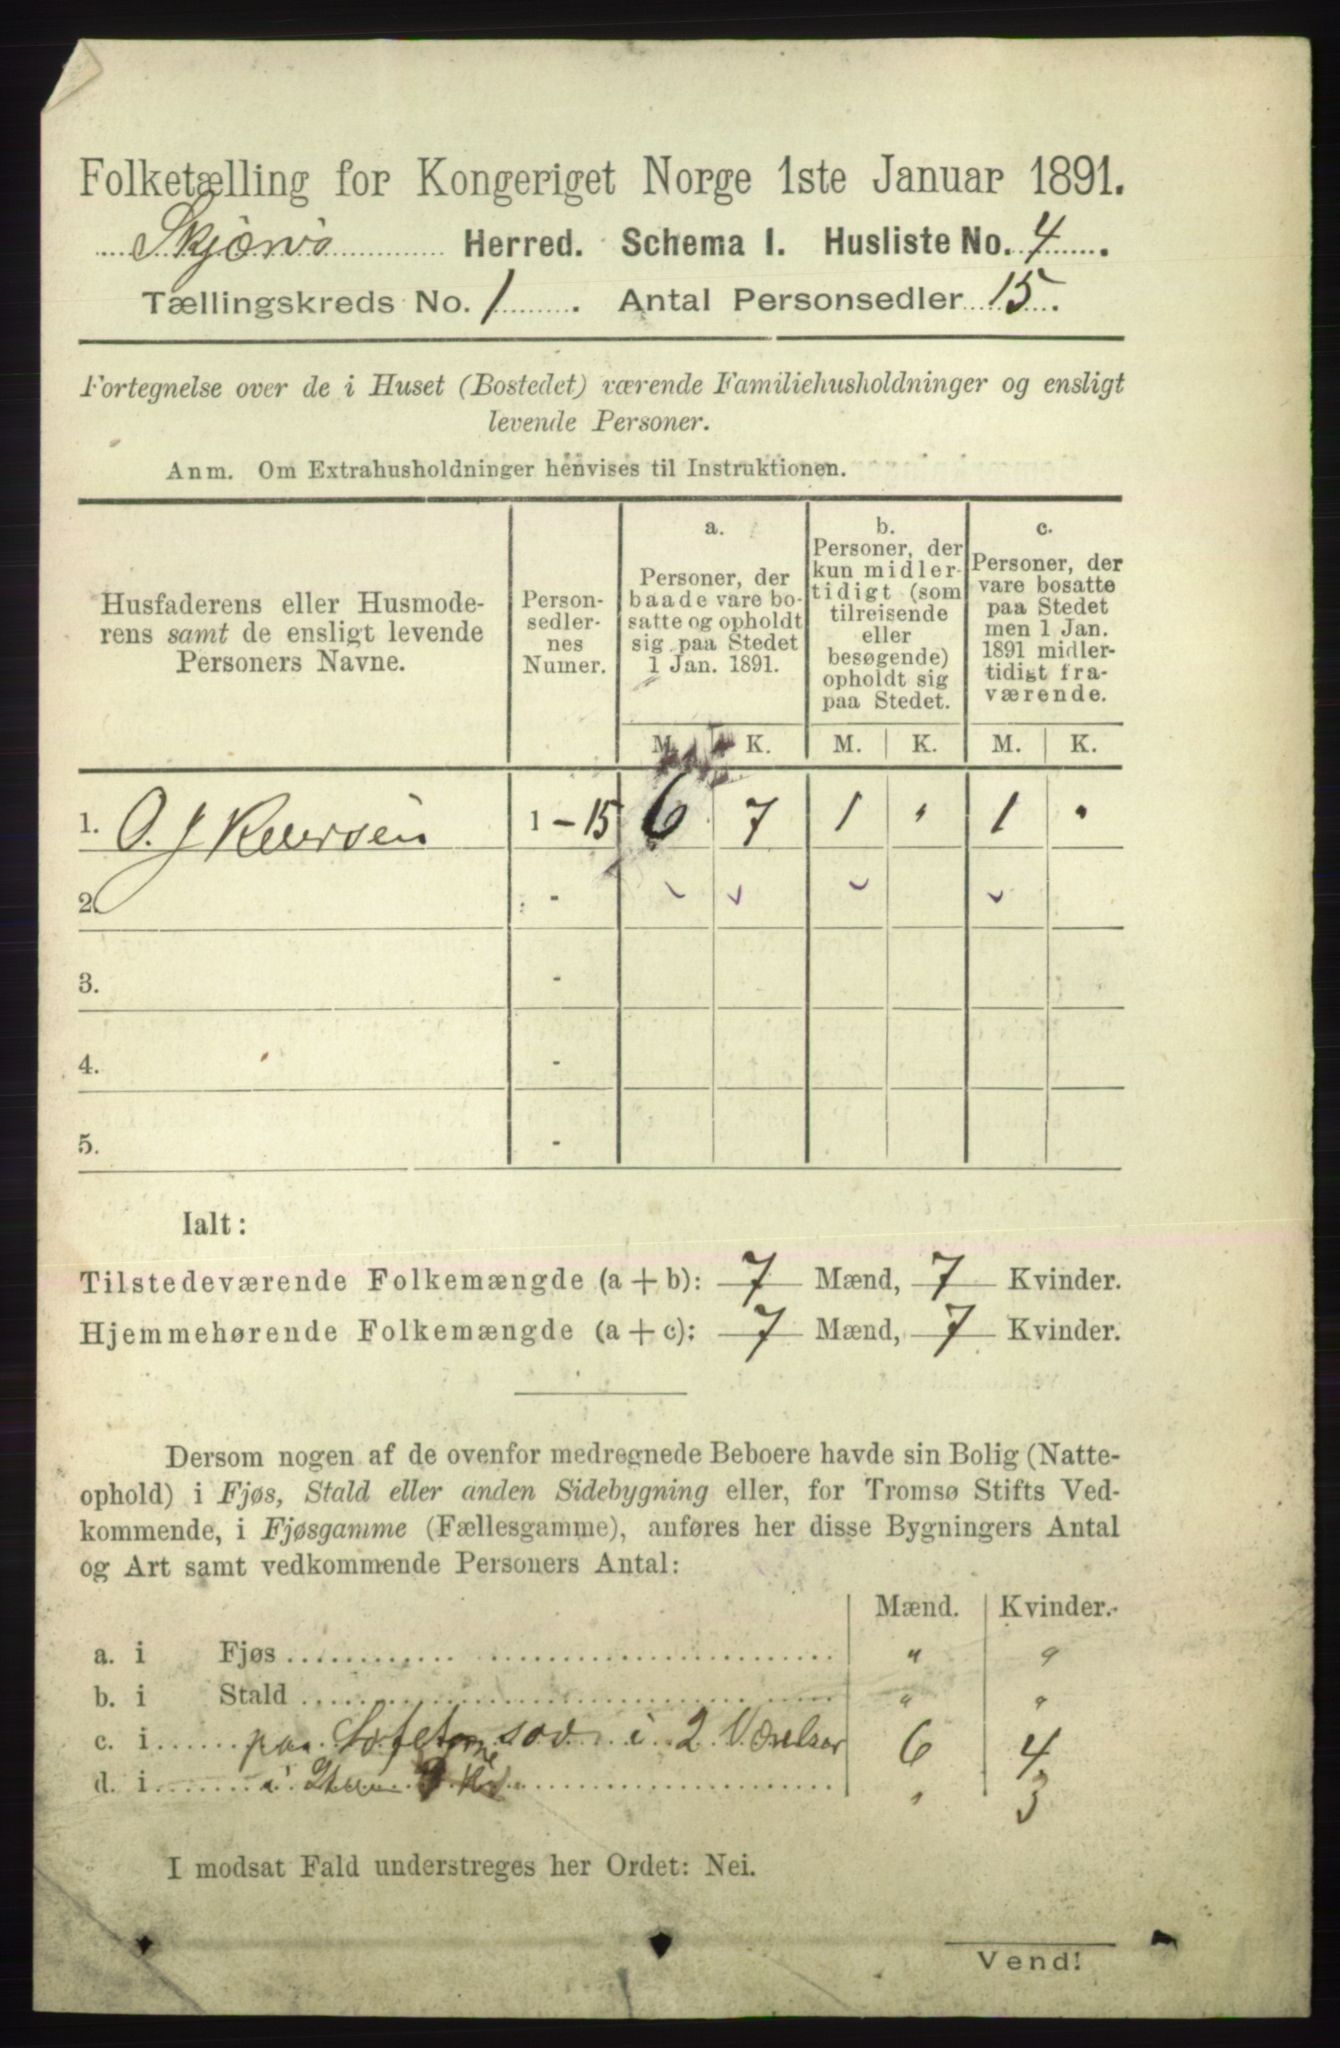 Folketælling for Kongeriget Norge 1ste Januar 1891.
Skjærvø Herred. Schema I. Husliste No. 4.
Tællingskreds No. 1. Antal Personsedler 15.
Fortegnelse over de i Huset (Bostedet) værende Familiehusholdninger og ensligt
levende Personer.
Anm. Om Extrahusholdninger henvises til Instruktionen.
Husfaderens eller Husmode-
rens samt de ensligt levende
Personers Navne.
Person-
sedler-
nes
Numer.
a.
Personer, der
baade vare bo-
satte og opholdt
sig paa Stedet
1 Jan. 1891.
b.
Personer, der
kun midler-
tidigt (som
tilreisende
eller
besøgende)
opholdt sig
paa Stedet.
c.
Personer, der
vare bosatte
paa Stedet
men 1 Jan.
1891 midler-
tidigt fra-
værende.
M. K. M. K. M. K.
1. O. J. 1 - 15 6 7 1 " 1 "
2. -
3. -
4. -
5. -
Ialt:
Tilstedeværende Folkemængde (a + b): 7 Mænd, 7 Kvinder.
Hjemmehørende Folkemængde (a + c): 7 Mænd, 7 Kvinder.
Dersom nogen af de ovenfor medregnede Beboere havde sin Bolig (Natte-
ophold) i Fjøs, Stald eller anden Sidebygning eller, for Tromsø Stifts Ved-
kommende, i Fjøsgamme (Fællesgamme), anføres her disse Bygningers Antal
og Art samt vedkommende Personers Antal:
Mænd. Kvinder.
a. i Fjøs " "
b. i Stald " "
c. i paa sov i 2 Værelser 6 4
d. i " 3
I modsat Fald understreges her Ordet: Nei.
Vend!